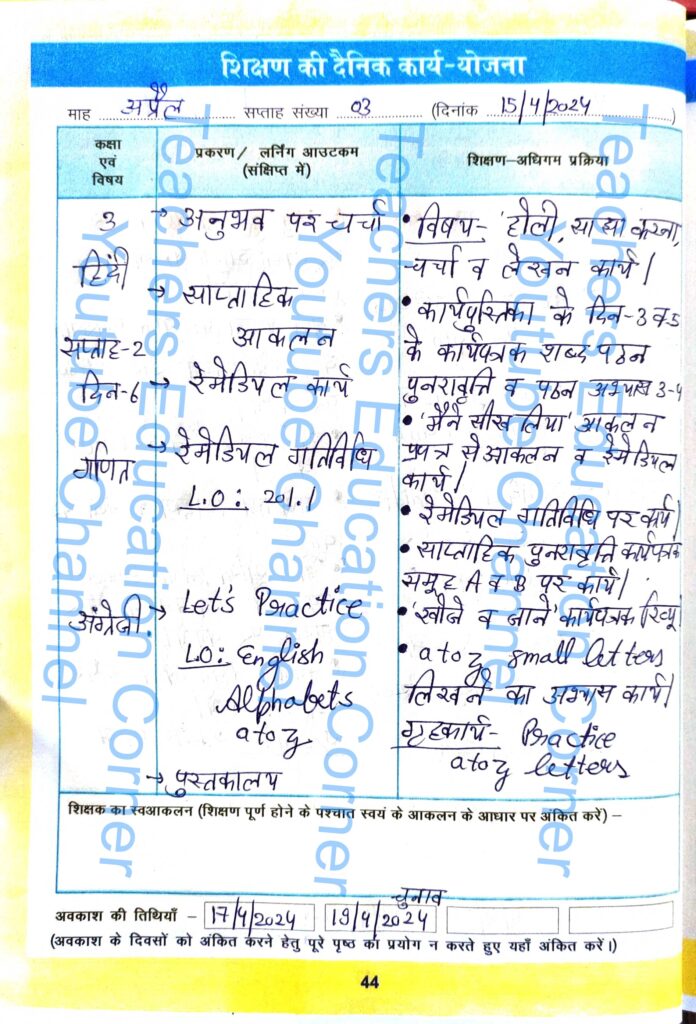 शिक्षण की दैनिक कार्य-योजना
माह अप्रैल सप्ताह संख्या 03 (दिनांक 15/4/2024)
कक्षा एवं विषय
प्रकरण/ लर्निंग आउटकम (संक्षिप्त में)
शिक्षण-अधिगम प्रक्रिया
3
हिंदी
सप्ताह-2
दिन-6
गणित
अंग्रेजी
→ अनुभव पर चर्चा
→ साप्ताहिक
आकलन
→ रेमेडियल कार्य
→ रेमेडियल गतिविधि
L.O: 201.1
→ Let's Practice
LO: English
Alphabets
a to z
→ पुस्तकालय
• विषय- 'होली, साझा करना,
चर्चा व लेखन कार्य।
• कार्यपुस्तिका के दिन-3 व 5
के कार्यपत्रक शब्द पठन
पुनरावृत्ति व पठन अभ्यास 3-4
• 'मैंने सीख लिया' आकलन
प्रपत्र से आकलन व रेमेडियल
कार्य।
• रेमेडियल गतिविधि पर कार्य।
• साप्ताहिक पुनरावृत्ति कार्यपत्रक
समूह A व B पर कार्य।
• 'खोजें व जाने' कार्यपत्रक रिव्यू।
• a to z small letters
लिखने का अभ्यास कार्य।
गृहकार्य- Practice
a to z letters
शिक्षक का स्वआकलन (शिक्षण पूर्ण होने के पश्चात स्वयं के आकलन के आधार पर अंकित करें) –
चुनाव
अवकाश की तिथियाँ – 17/4/2024 19/4/2024
(अवकाश के दिवसों को अंकित करने हेतु पूरे पृष्ठ का प्रयोग न करते हुए यहाँ अंकित करें।)
44
Teachers Education Corner
Youtube Channel
Teachers Education Corner
Youtube Channel
Teachers Education Corner
Youtube Channel